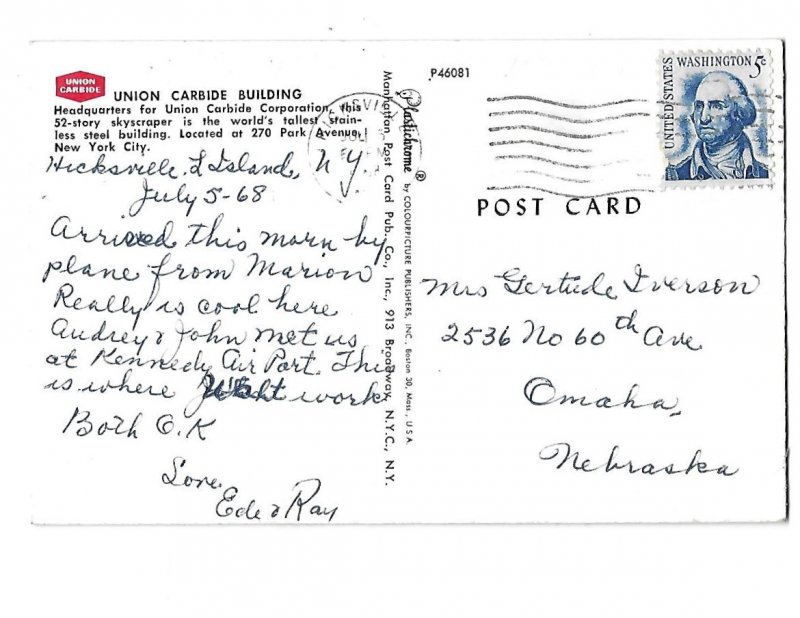 UNION
CARBIDE
UNION CARBIDE BUILDING
Headquarters for Union Carbide Corporation, this
52-story skyscraper is the world's tallest stain-
less steel building. Located at 270 Park Avenue,
New York City.
Hicksville, L Island, N.Y.
July 5-68
Arrived this morn by
plane from Marion
Really is cool here
Audrey & John met us
at Kennedy Air Port. This
is where work
Both O.K
Love
Ede & Ray
Manhattan Post Card Pub. Co., Inc., 913 Broadway, N.Y.C., N.Y.
Plastichrome ® by COLOURPICTURE PUBLISHERS, INC., Boston 30, Mass., U.S.A.
P46081
UNITED STATES
WASHINGTON 5c
POST CARD
Mrs Gertrude Iverson
2536 No 60th Ave
Omaha,
Nebraska